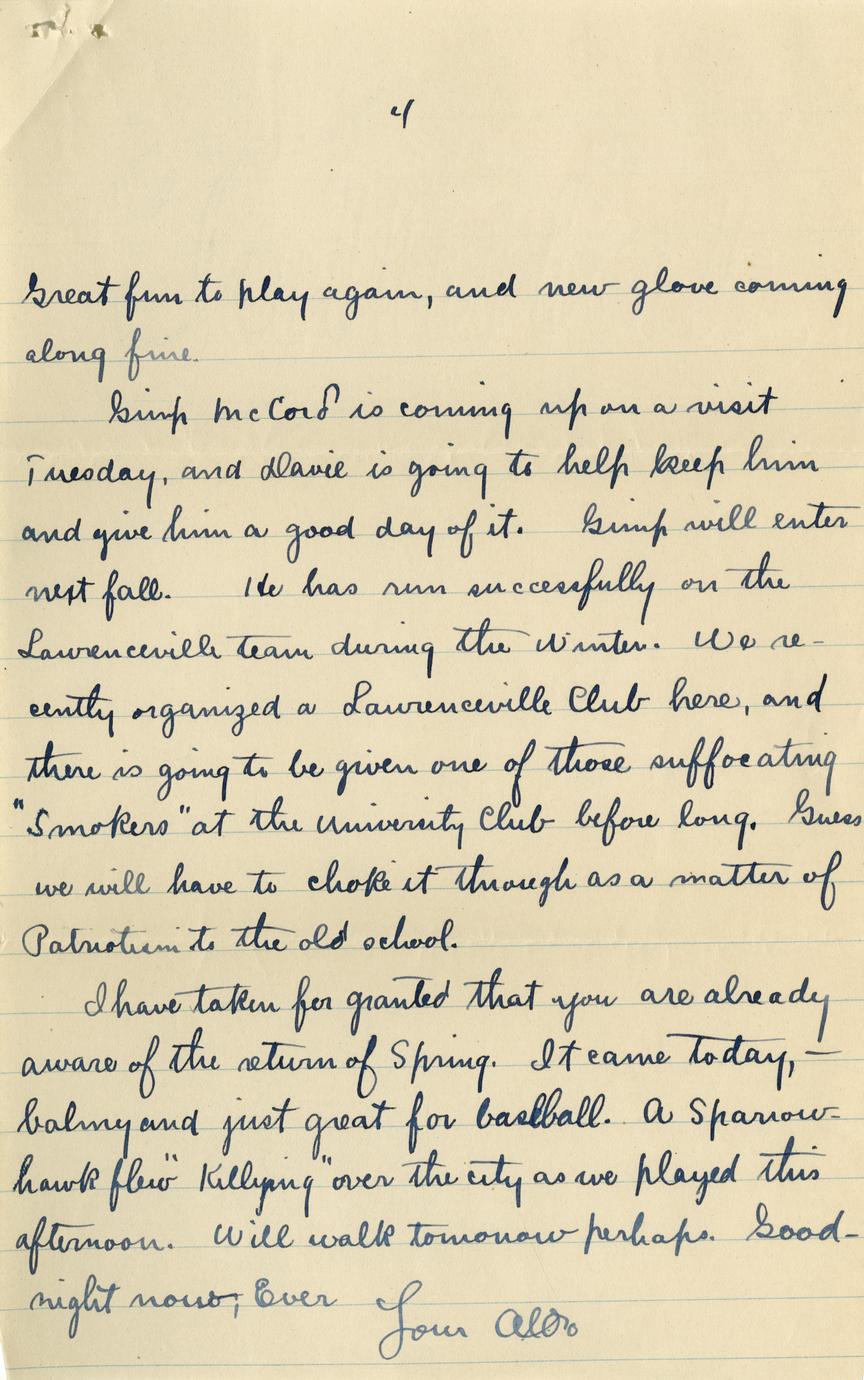 4
Great fun to play again, and new glove coming
along fine.
Gimp McCord is coming up on a visit
Tuesday, and Davie is going to help keep him
and give him a good day of it. Gimp will enter
next fall. He has run successfully on the
Lawrenceville team during the Winter. We re-
cently organized a Lawrenceville Club here, and
there is going to be given one of those suffocating
"Smokers" at the University Club before long. Guess
we will have to choke it through as a matter of
Patriotism to the old school.
I have taken for granted that you are already
aware of the return of Spring. It came today, —
balmy and just great for baseball. A Sparrow-
hawk flew "Killying" over the city as we played this
afternoon. Will walk tomorrow perhaps. Good-
night now, Ever
Your Aldo